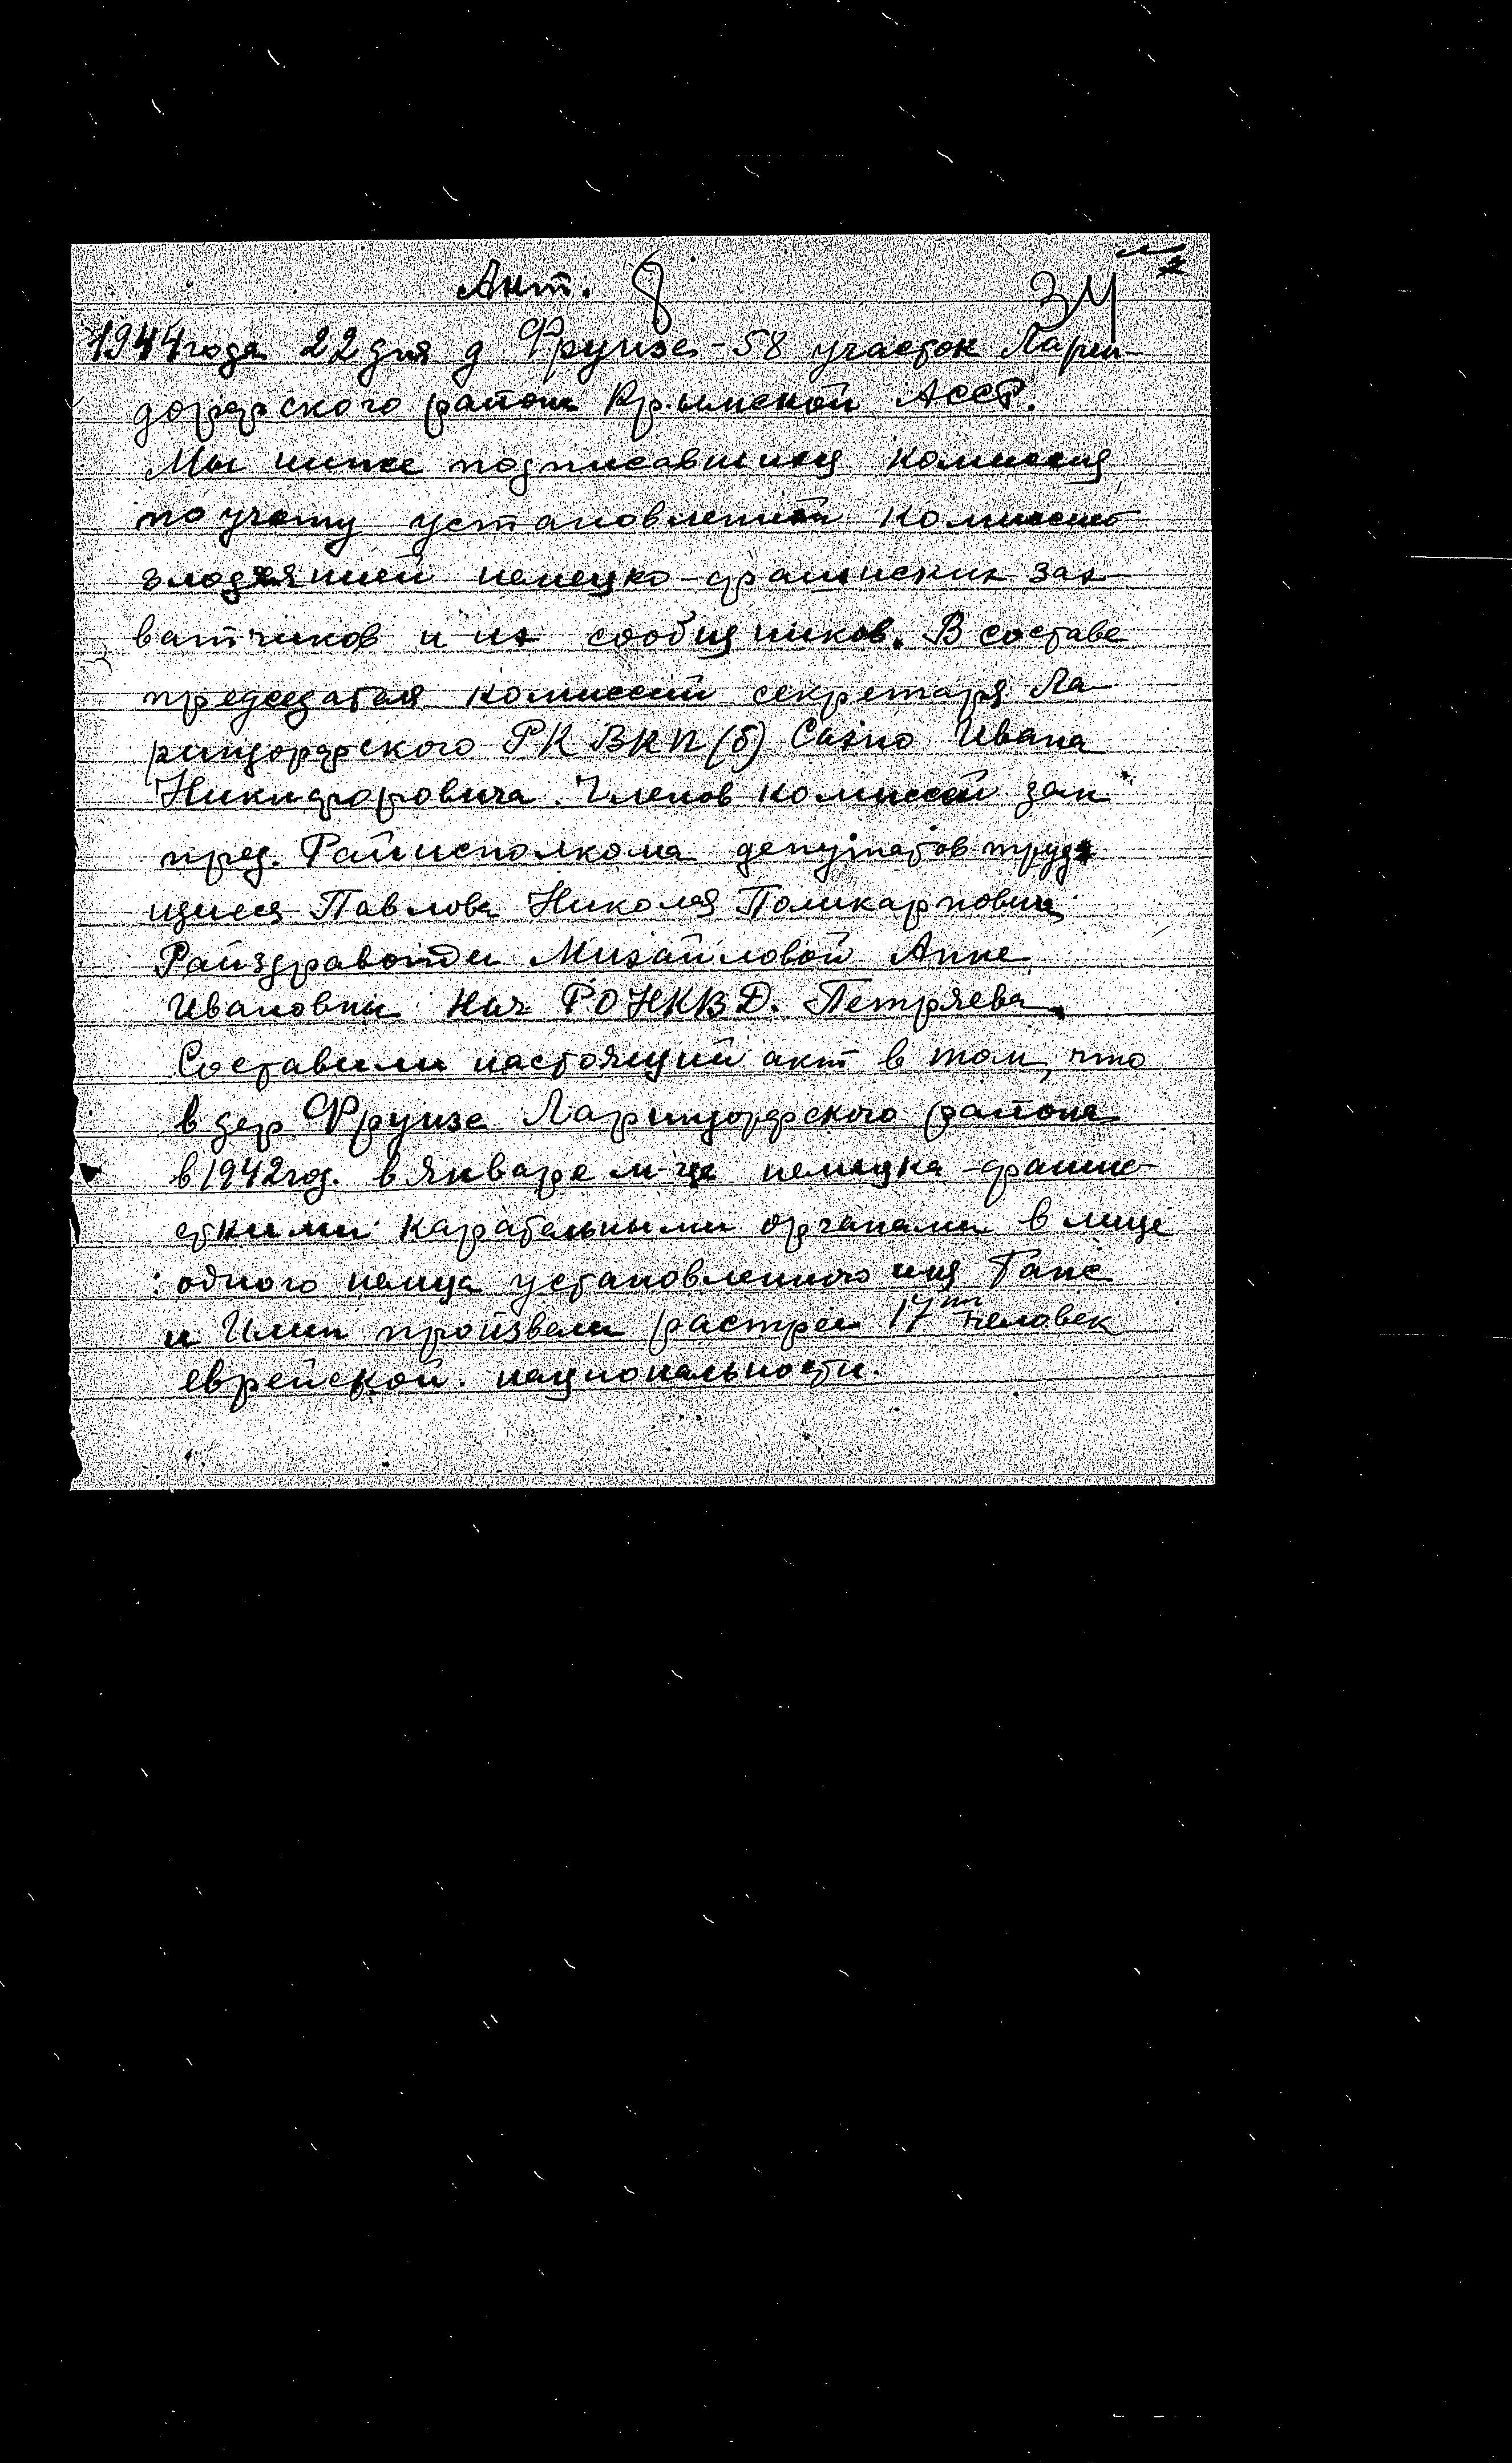 Акт. 8 34
1944 года 22 дня д Фрунзе - 58 участокЛарин-
дорфского района Крымской АССР.
Мы ниже подписавшиися комиссия
по учету установленной комиссией
злодеяний немецко-фашиских зах-
ватчиков и их сообщников. В составе
председателя комиссий секретаря Ла-
риндорфского РК ВКП(б) Сахно Ивана
Никифоровича. Членов комиссий зам
пред. Райисполкома депутатов трудя
щиеся Павлова Николая Поликарповича
Райздравотдел Михайловой Анне
Ивановны Нач РОНКВД. Петряева.
Составили настоящий акт в том, что
в дер Фрунзе Лариндорфского района
в 1942 год. в январе м-це немецка-фашис-
ткими карательными органами в лице
одного немца установленного имя Ганс
и произвели растрел 17ти человек
еврейской. национальности.